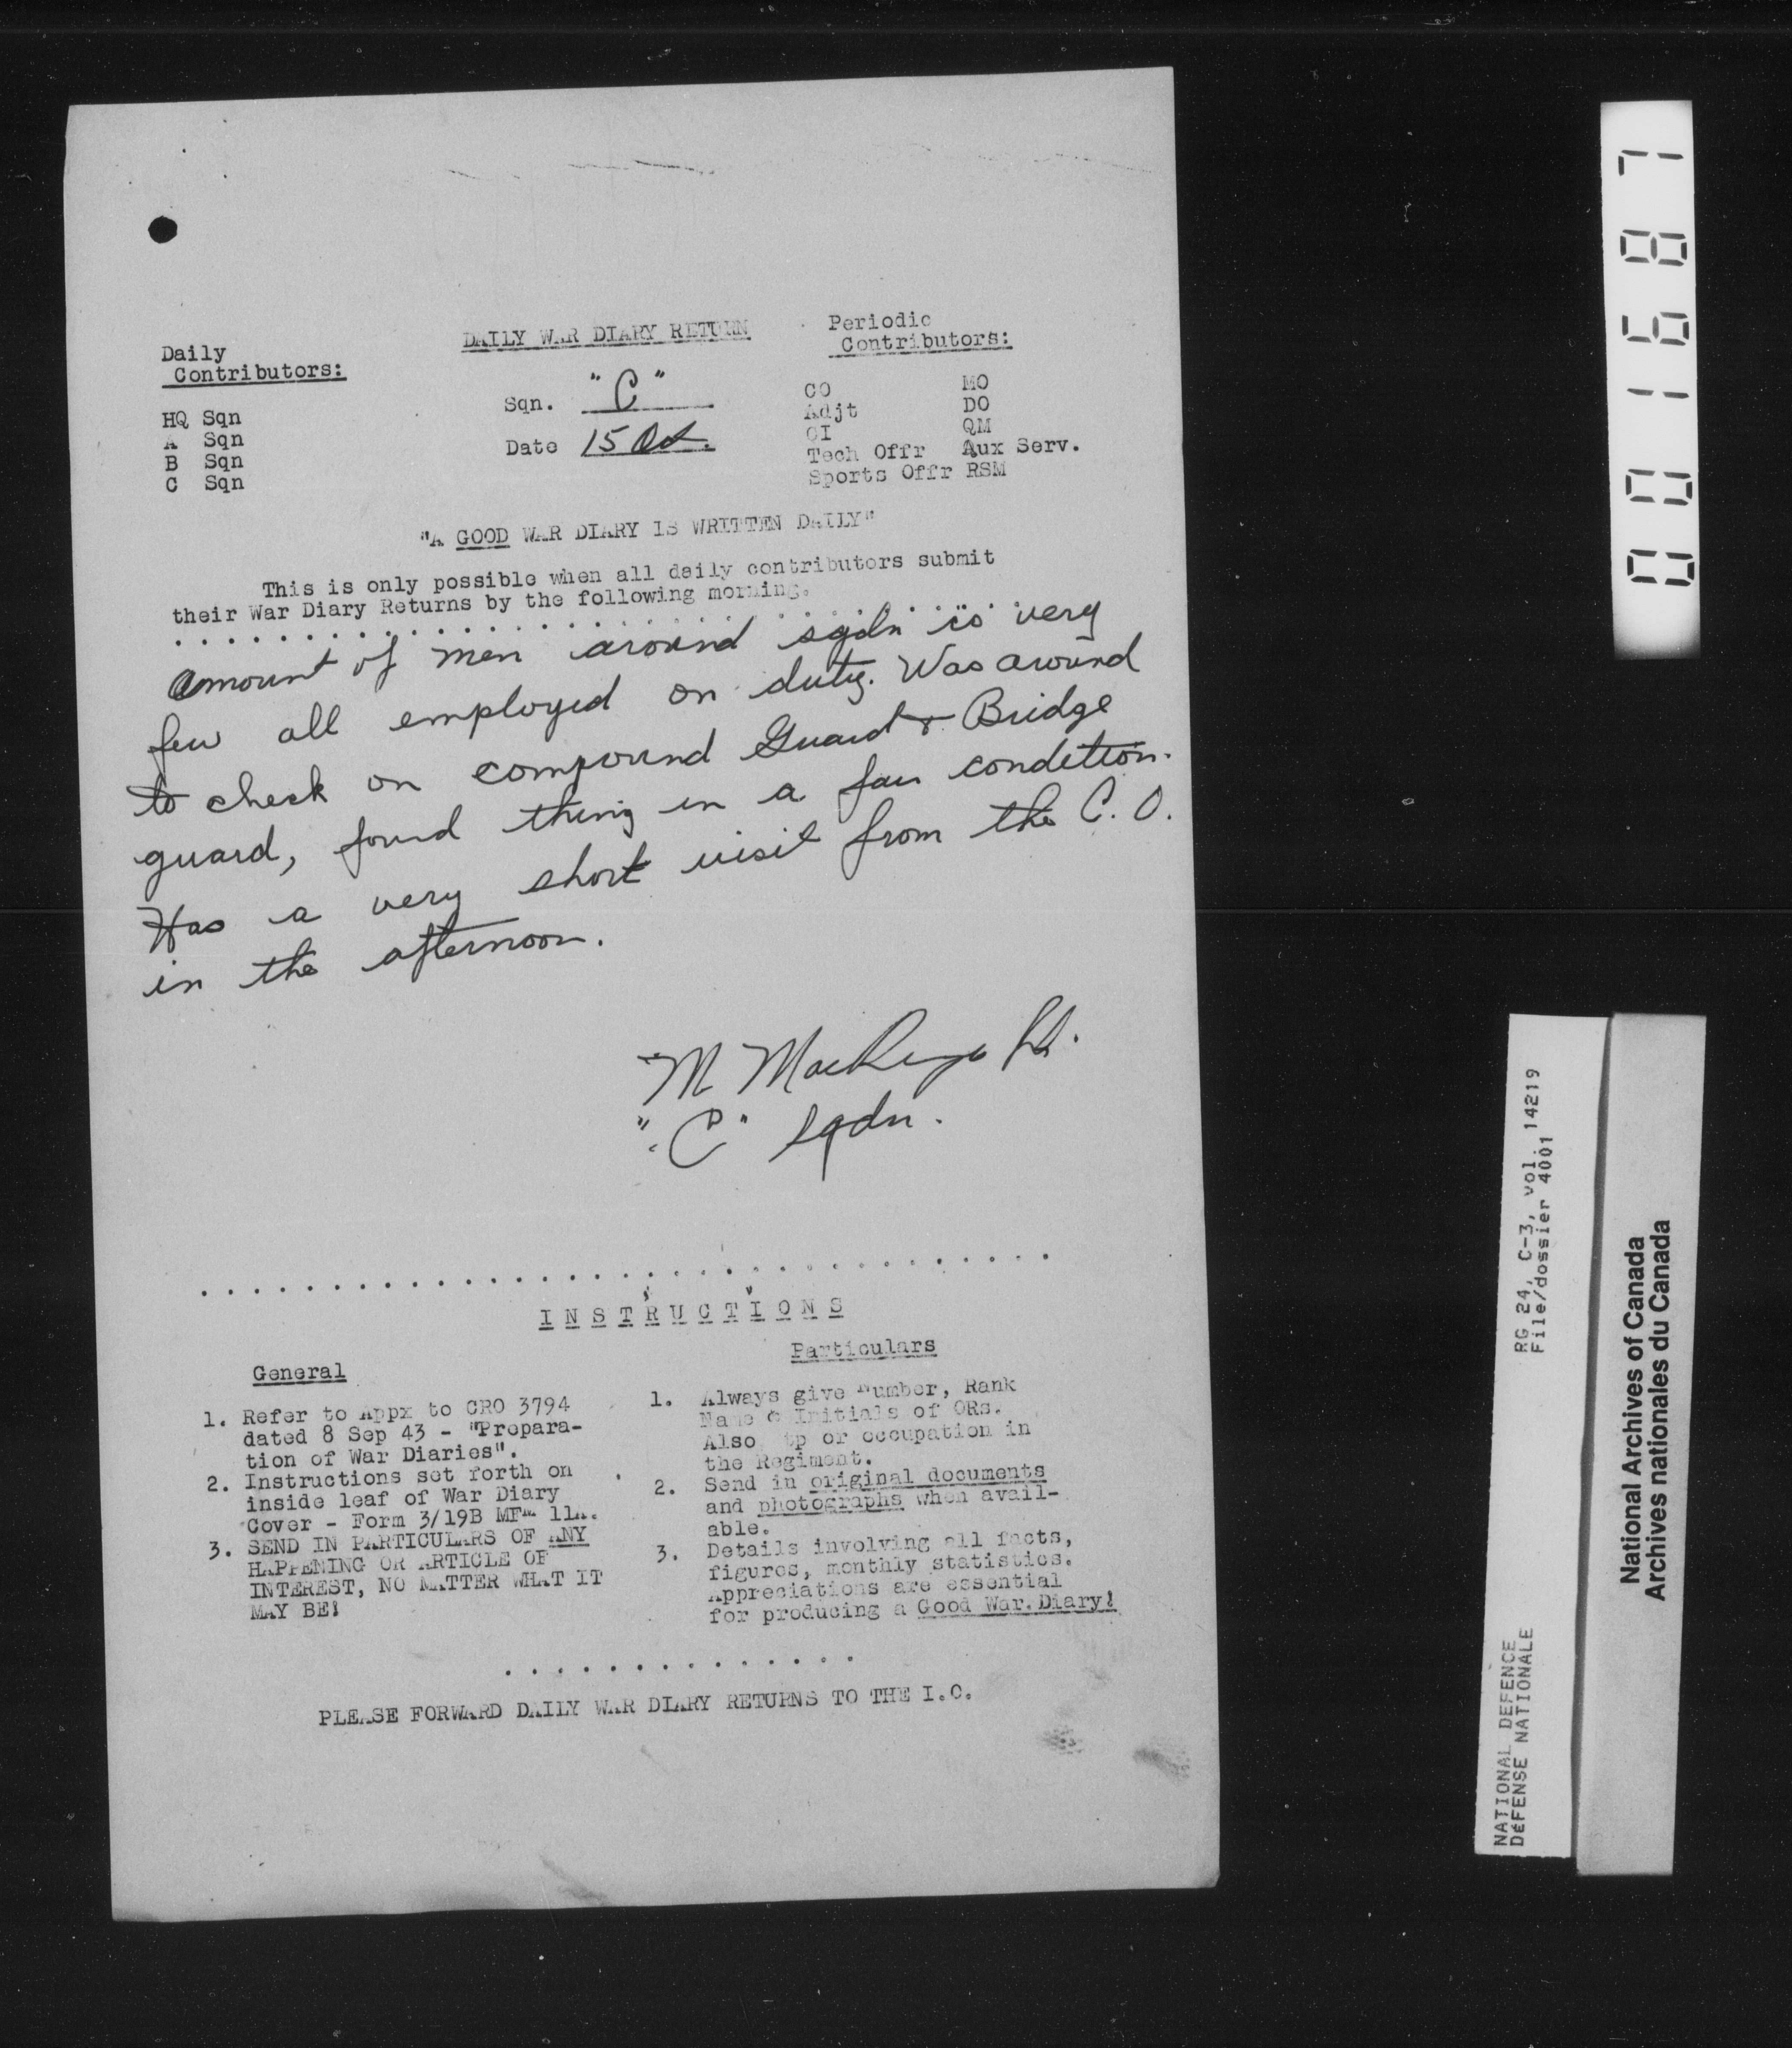 DAILY WAR DIARY RETURN
Daily
Contributors:
HQ Sqn
A Sqn
B Sqn
C Sqn
Sqn. "C"
Date 15 Oct.
Periodic
Contributors:
CO MO
Adjt DO
OI QM
Tech Offr Aux Serv.
Sports Offr RSM
"A GOOD WAR DIARY IS WRITTEN DAILY"
This is only possible when all daily contributors submit
their War Diary Returns by the following morning.
Amount of men around sqdn is very
few all employed on duty. Was around
to check on compound Guard & Bridge
guard, found thing in a fair condition.
Has a very short visit from the C.O.
in the afternoon.
M Lt.
"C" Sqdn.
INSTRUCTIONS
General
1. Refer to Appx to CRO 3794
dated 8 Sep 43 - "Prepara-
tion of War Diaries".
2. Instructions set forth on
inside leaf of War Diary
Cover - Form 3/19B MFM 11A.
3. SEND IN PARTICULARS OF ANY
HAPPENING OR ARTICLE OF
INTEREST, NO MATTER WHAT IT
MAY BE!
Particulars
1. Always give Number, Rank
Name & Initials of ORs.
Also tp or occupation in
the Regiment.
2. Send in original documents
and photographs when avail-
able.
3. Details involving all facts,
figures, monthly statistics.
Appreciations are essential
for producing a Good War Diary!
PLEASE FORWARD DAILY WAR DIARY RETURNS TO THE I.O.
001687
RG 24, C-3, vol. 14219
File/dossier 4001
NATIONAL DEFENCE
DÉFENSE NATIONALE
National Archives of Canada
Archives nationales du Canada